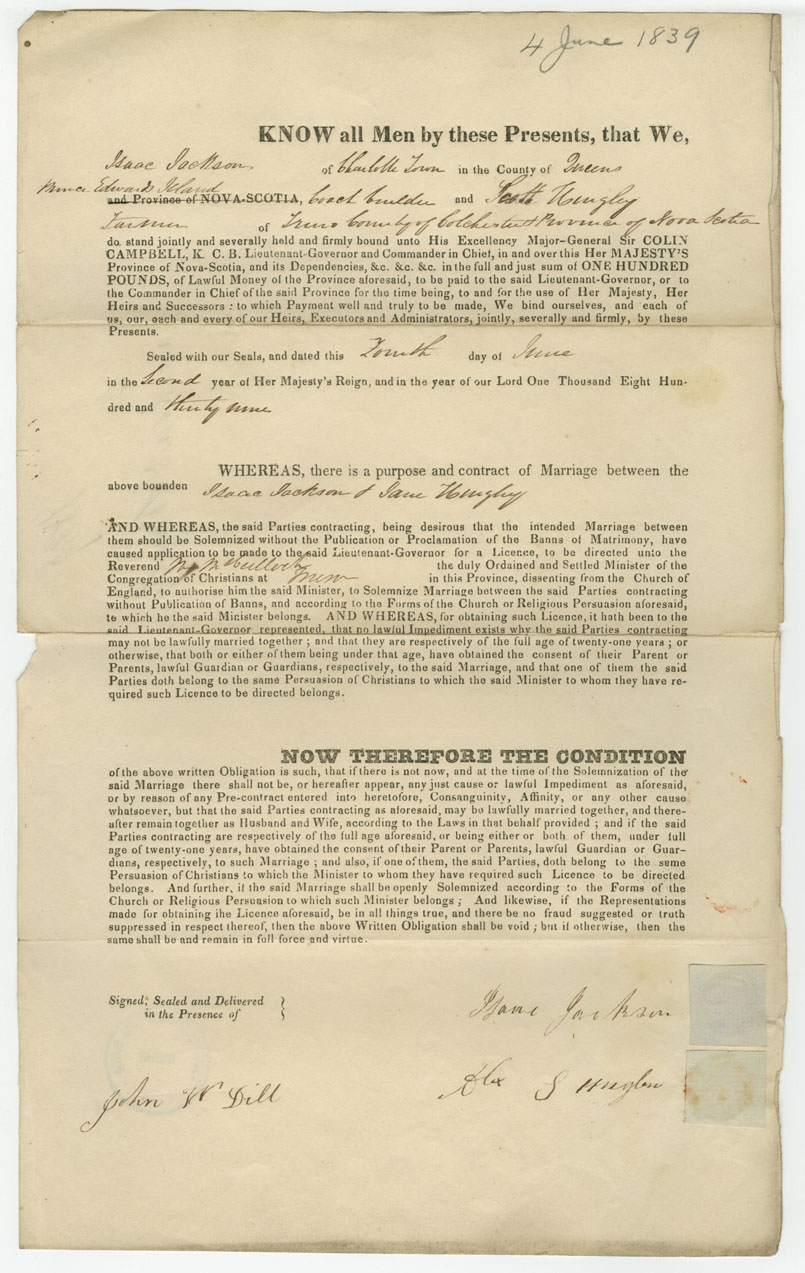 4 June 1839
KNOW all Men by these Presents, that We,
Isaac Jackson of Charlotte Town in the County of Queens
Prince Edward Island
and Province of NOVA-SCOTIA, Coach builder and Scott Hengley
Farmer of Truro County of Colchester & Province of Nova Scotia
do stand jointly and severally held and firmly bound unto His Excellency Major-General Sir COLIN
CAMPBELL, K. C. B. Lieutenant-Governor and Commander in Chief, in and over this Her MAJESTY'S
Province of Nova-Scotia, and its Dependencies, &c. &c. &c. in the full and just sum of ONE HUNDRED
POUNDS, of Lawful Money of the Province aforesaid, to be paid to the said Lieutenant-Governor, or to
the Commander in Chief of the said Province for the time being, to and for the use of Her Majesty, Her
Heirs and Successors : to which Payment well and truly to be made, We bind ourselves, and each of
us, our, each and every of our Heirs, Executors and Administrators, jointly, severally and firmly, by these
Presents.
Sealed with our Seals, and dated this Fourth day of June
in the Second year of Her Majesty's Reign, and in the year of our Lord One Thousand Eight Hun-
dred and thirty nine
WHEREAS, there is a purpose and contract of Marriage between the
above bounden Isaac Jackson & Jane Hengley
AND WHEREAS, the said Parties contracting, being desirous that the intended Marriage between
them should be Solemnized without the Publication or Proclamation of the Banns of Matrimony, have
caused application to be made to the said Lieutenant-Governor for a Licence, to be directed unto the
Reverend McCulloch the duly Ordained and Settled Minister of the
Congregation of Christians at Truro in this Province, dissenting from the Church of
England, to authorise him the said Minister, to Solemnize Marriage between the said Parties contracting
without Publication of Banns, and according to the Forms of the Church or Religious Persuasion aforesaid,
to which he the said Minister belongs. AND WHEREAS, for obtaining such Licence, it hath been to the
said Lieutenant-Governor represented, that no lawful Impediment exists why the said Parties contracting
may not be lawfully married together ; and that they are respectively of the full age of twenty-one years ; or
otherwise, that both or either of them being under that age, have obtained the consent of their Parent or
Parents, lawful Guardian or Guardians, respectively, to the said Marriage, and that one of them the said
Parties doth belong to the same Persuasion of Christians to which the said Minister to whom they have re-
quired such Licence to be directed belongs.
NOW THEREFORE THE CONDITION
of the above written Obligation is such, that if there is not now, and at the time of the Solemnization of the
said Marriage there shall not be, or hereafter appear, any just cause or lawful Impediment as aforesaid,
or by reason of any Pre-contract entered into heretofore, Consanguinity, Affinity, or any other cause
whatsoever, but that the said Parties contracting as aforesaid, may be lawfully married together, and there-
after remain together as Husband and Wife, according to the Laws in that behalf provided ; and if the said
Parties contracting are respectively of the full age aforesaid, or being either or both of them, under full
age of twenty-one years, have obtained the consent of their Parent or Parents, lawful Guardian or Guar-
dians, respectively, to such Marriage ; and also, if one of them, the said Parties, doth belong to the same
Persuasion of Christians to which the Minister to whom they have required such Licence to be directed
belongs. And further, if the said Marriage shall be openly Solemnized according to the Forms of the
Church or Religious Persuasion to which such Minister belongs ; And likewise, if the Representations
made for obtaining ihe Licence aforesaid, be in all things true, and there be no fraud suggested or truth
suppressed in respect thereof, then the above Written Obligation shall be void ; but if otherwise, then the
same shall be and remain in full force and virtue.
Signed, Sealed and Delivered
in the Presence of
Isaac Jackson
John W Dill
Alex S